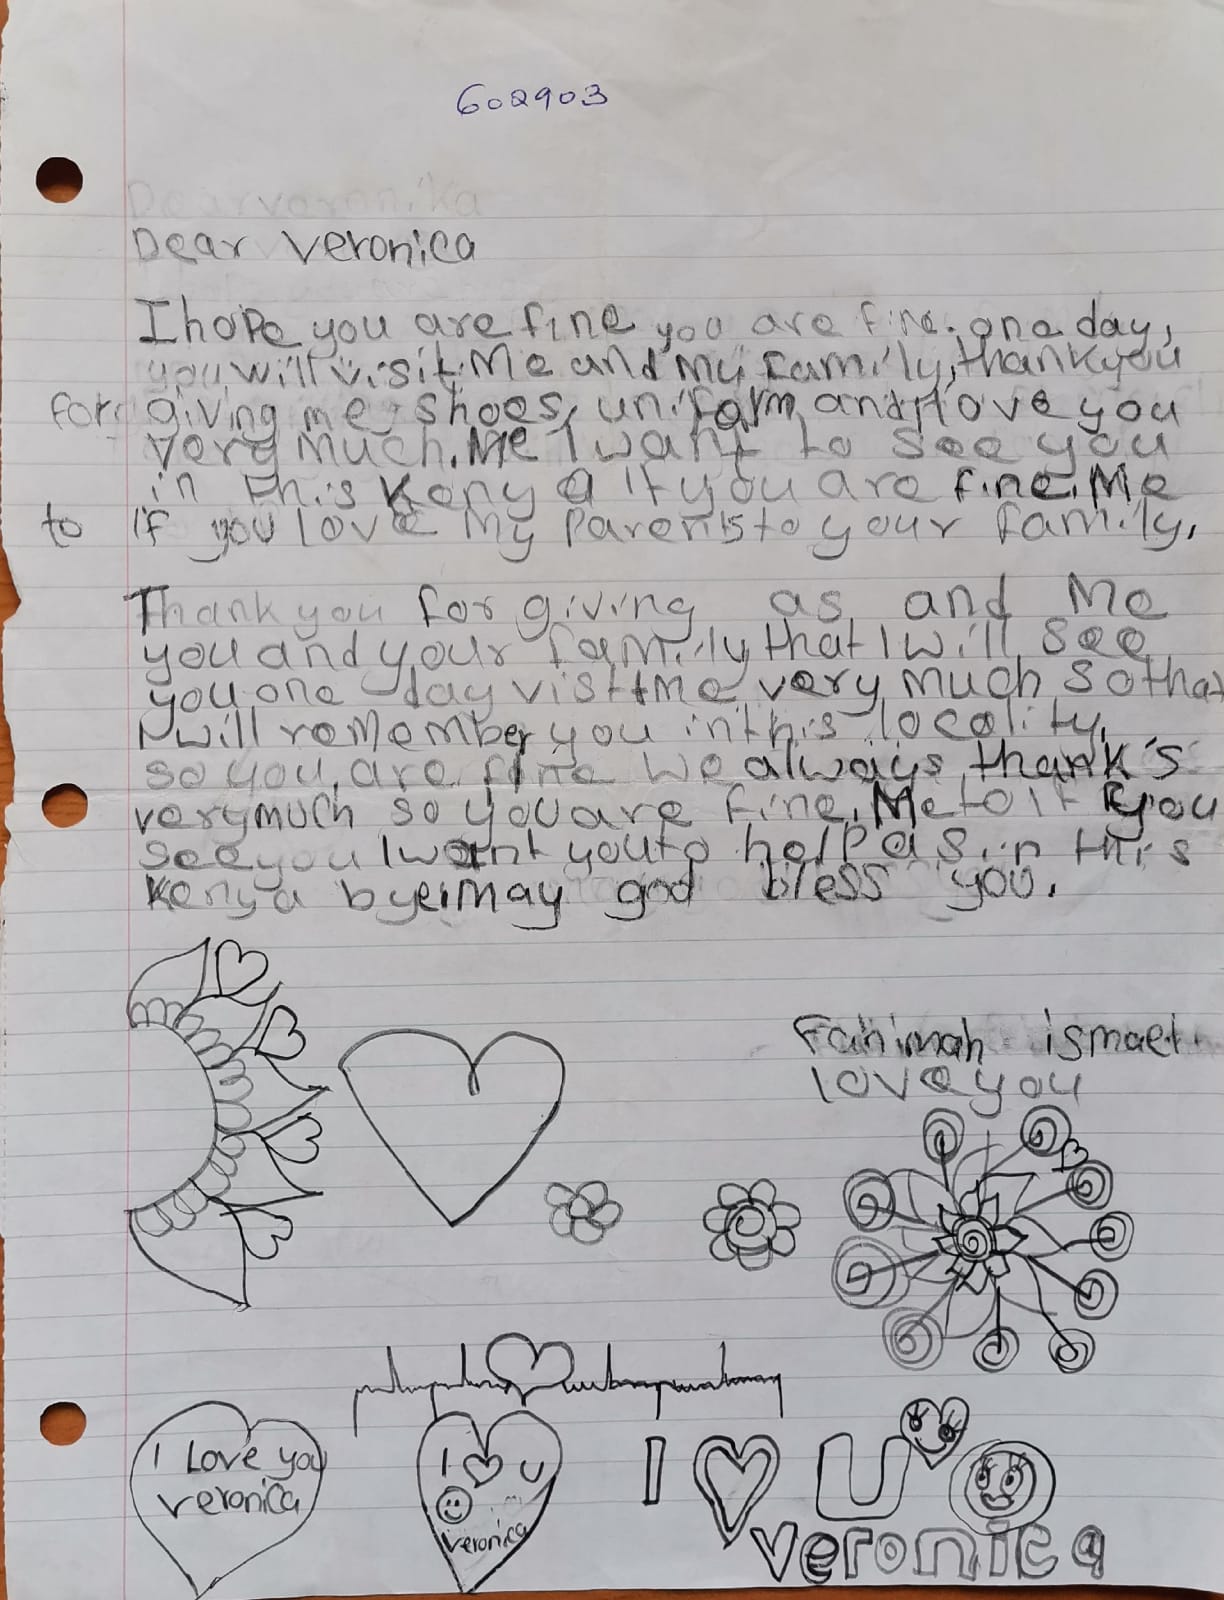 602903
Dear veronika
Dear veronica
I hope you are fine you are fine. one day,
you will visit Me and My family, thank you
for giving me shoes, uniform and I love you
very much. Me I want to see you
in this Kenya if you are fine. Me
to if you love My parents to your family.
Thank you for giving as and Me
you and your family that I will see
you one day visit me very much so that
I will remember you in this locality.
so you are fine we always thank's
very much so you are fine. Me to if you
see you I want you to help as in this
Kenya bye. May god bless you.
Fahimah ismael.
love you
I Love you
veronica
I U
veronica
I U
veronica